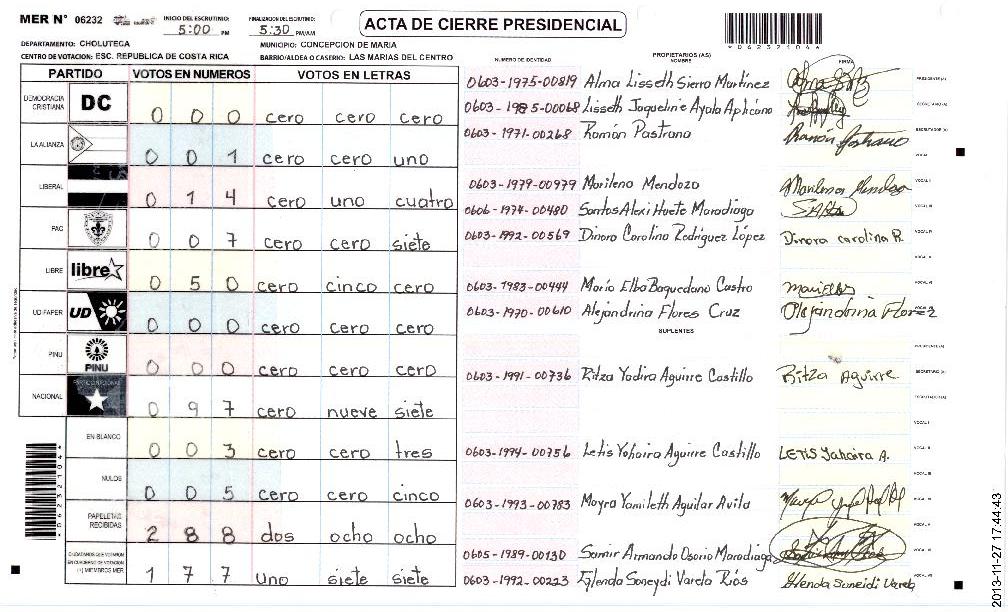 MER N° 06232
INICIO DEL ESCRUTINIO: 5:00 PM
FINALIZACION DEL ESCRUTINIO: 5:30 PM/AM
ACTA DE CIERRE PRESIDENCIAL
*06232104*
DEPARTAMENTO: CHOLUTECA
MUNICIPIO: CONCEPCION DE MARIA
CENTRO DE VOTACION: ESC. REPUBLICA DE COSTA RICA
BARRIO/ALDEA O CASERIO: LAS MARIAS DEL CENTRO
PARTIDO VOTOS EN NUMEROS VOTOS EN LETRAS
DEMOCRACIA CRISTIANA DC 0 0 0 cero cero cero
LA ALIANZA 0 0 1 cero cero uno
LIBERAL 0 1 4 cero uno cuatro
PAC 0 0 7 cero cero siete
LIBRE libre 0 5 0 cero cinco cero
UD FAPER UD 0 0 0 cero cero cero
PINU PINU 0 0 0 cero cero cero
NACIONAL 0 9 7 cero nueve siete
EN BLANCO 0 0 3 cero cero tres
NULOS 0 0 5 cero cero cinco
PAPELETAS RECIBIDAS 2 8 8 dos ocho ocho
CIUDADANOS QUE VOTARON EN CUADERNO DE VOTACION (+) MIEMBROS MER 1 7 7 uno siete siete
NUMERO DE IDENTIDAD PROPIETARIOS (AS) NOMBRE FIRMA
0603-1975-00819 Alma Lisseth Sierra Martínez PRESIDENTE(A)
0603-1985-00068 Lisseth Jaqueline Ayala Aplicano SECRETARIO(A)
0603-1971-00268 Ramón Pastrana Ramón Pastrano ESCRUTADOR(A)
VOCAL I
0603-1979-00979 Marilena Mendoza Marilena Mendoza VOCAL II
0606-1974-00480 Santos Alexi Huete Maradiaga VOCAL III
0603-1992-00569 Dinora Carolina Rodríguez López Dinora carolina R. VOCAL IV
0603-1983-00444 María Elba Baquedano Castro VOCAL VI
0603-1970-00610 Alejandrina Flores Cruz Alejandrina Florez
SUPLENTES
0603-1991-00736 Ritza Yadira Aguirre Castillo Ritza Aguirre SECRETARIO(A)
0603-1994-00756 Letis Yahaira Aguirre Castillo LETIS Yahaira A. VOCAL II
0603-1993-00783 Mayra Yamileth Aguilar Avila
0605-1989-00130 Samir Armando Osorio Maradiaga
0603-1992-00223 Glenda Soneydi Varela Ríos Glenda Suneidi Varela
*06232104*
2013-11-27 17:44:43